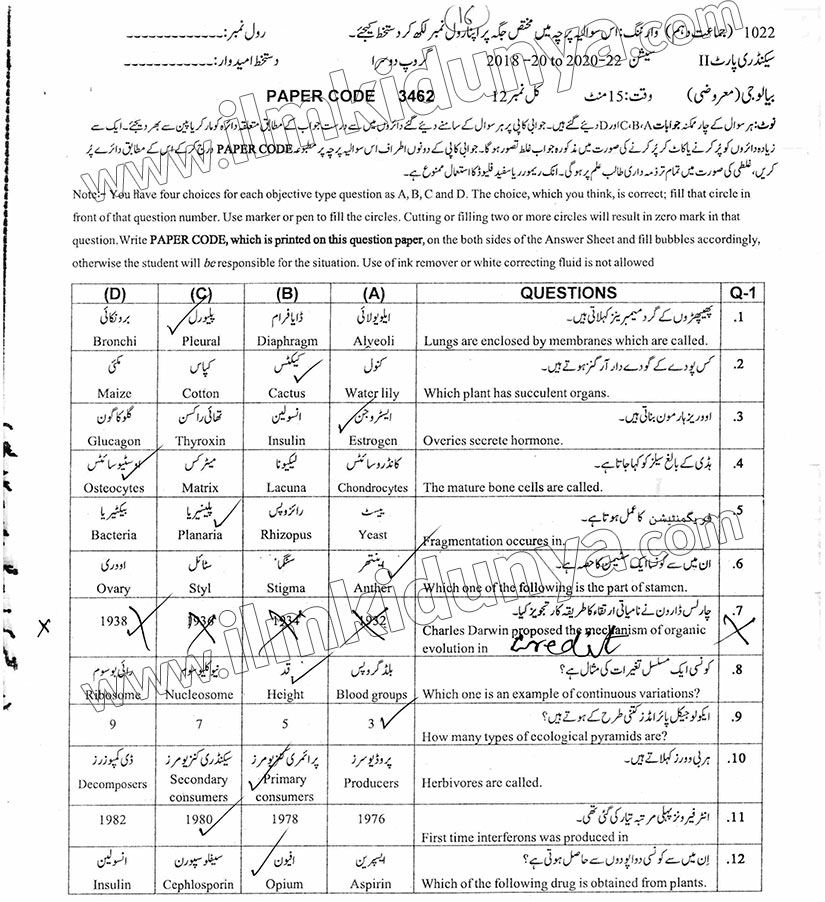 16
1022 (جماعت دہم) وارننگ: اس سوالیہ پرچہ میں مختص جگہ پر اپنا رول نمبر لکھ کر دستخط کیجئے۔ رول نمبر:
سیکنڈری پارٹ II سیشن 2018-20 to 2020-22 گروپ دوسرا دستخط امیدوار:
بیالوجی (معروضی) وقت: 15 منٹ کل نمبر 12 PAPER CODE 3462
نوٹ: ہر سوال کے چار ممکنہ جوابات A،B،C اور D دیئے گئے ہیں۔ جوابی کاپی پر ہر سوال کے سامنے دیئے گئے دائروں میں سے درست جواب کے مطابق متعلقہ دائرہ کو مارکر یا پین سے بھر دیجئے۔ ایک سے
زیادہ دائروں کو پُر کرنے یا کاٹ کر پُر کرنے کی صورت میں مذکورہ جواب غلط تصور ہوگا۔ جوابی کاپی کے دونوں اطراف اس سوالیہ پرچہ پر مطبوعہ PAPER CODE درج کر کے اس کے مطابق دائرے پُر
کریں، غلطی کی صورت میں تمام تر ذمہ داری طالب علم پر ہوگی۔ انک ریموور یا سفید فلیوڈ کا استعمال ممنوع ہے۔
Note:- You have four choices for each objective type question as A, B, C and D. The choice, which you think, is correct; fill that circle in
front of that question number. Use marker or pen to fill the circles. Cutting or filling two or more circles will result in zero mark in that
question.Write PAPER CODE, which is printed on this question paper, on the both sides of the Answer Sheet and fill bubbles accordingly,
otherwise the student will be responsible for the situation. Use of ink remover or white correcting fluid is not allowed
(D) (C) (B) (A) QUESTIONS Q-1
برونکائی پلیورل ڈایافرام ایلویولائی پھیپھڑوں کے گرد میمبرینز کہلاتی ہیں۔ .1
Bronchi Pleural Diaphragm Alveoli Lungs are enclosed by membranes which are called.
مکئی کپاس کیکٹس کنول کس پودے کے گودے دار آرگنز ہوتے ہیں۔ .2
Maize Cotton Cactus Water lily Which plant has succulent organs.
گلوکاگون تھائی راکسن انسولین ایسٹروجن اووریز ہارمون بناتی ہیں۔ .3
Glucagon Thyroxin Insulin Estrogen Overies secrete hormone.
اوسٹیوسائٹس میٹرکس لیکیونا کانڈروسائٹس ہڈی کے بالغ سیلز کو کہا جاتا ہے۔ .4
Osteocytes Matrix Lacuna Chondrocytes The mature bone cells are called.
بیکٹیریا پلینیریا رائزوپس ییسٹ فریگمنٹیشن کا عمل ہوتا ہے۔ .5
Bacteria Planaria Rhizopus Yeast Fragmentation occures in.
اووری سٹائل سٹگما اینتھر ان میں سے کونسا ایک سٹیمن کا حصہ ہے۔ .6
Ovary Styl Stigma Anther Which one of the following is the part of stamen.
1938 1936 1934 1932 چارلس ڈارون نے نامیاتی ارتقاء کا طریقہ کار تجویز کیا۔ .7
Charles Darwin proposed the mechanism of organic
evolution in credit
رائبوسوم نیوکلیوسوم قد بلڈ گروپس کونسی ایک مسلسل تغیرات کی مثال ہے؟ .8
Ribosome Nucleosome Height Blood groups Which one is an example of continuous variations?
9 7 5 3 ایکولوجیکل پائرامڈز کتنی طرح کے ہوتے ہیں؟ .9
How many types of ecological pyramids are?
ڈی کمپوزرز سیکنڈری کنزیومرز پرائمری کنزیومرز پروڈیوسرز ہربی وورز کہلاتے ہیں۔ .10
Decomposers Secondary consumers Primary consumers Producers Herbivores are called.
1982 1980 1978 1976 انٹرفیرونز پہلی مرتبہ تیار کی گئی تھی۔ .11
First time interferons was produced in
انسولین سیفلوسپورن افیون ایسپرین اِن میں سے کونسی دوا پودوں سے حاصل ہوتی ہے؟ .12
Insulin Cephlosporin Opium Aspirin Which of the following drug is obtained from plants.
www.ilmkidunya.com
www.ilmkidunya.com